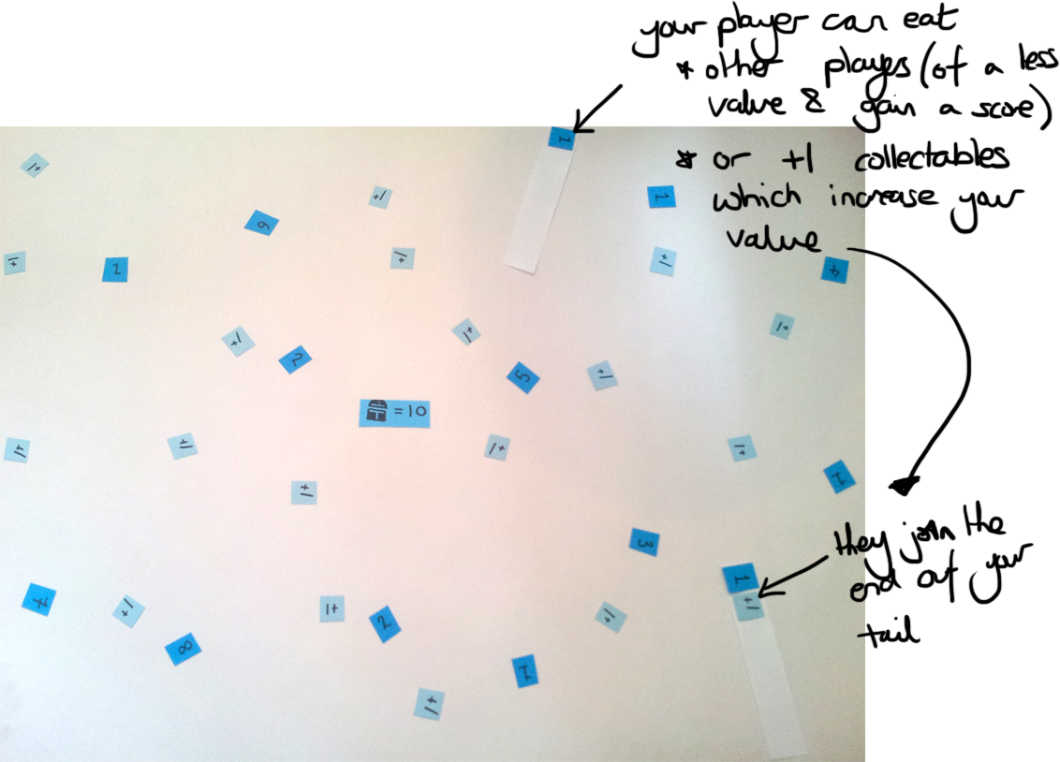 your player can eat
* other playes (of a less
value & gain a score)
* or +1 collectables
which increase your
value
they join the
end of your
tail
1
+1
+1
1
6
+1
+1
+1
1
4
+1
+1
+1
2
+1
5
=10
+1
+1
+1
+1
1
+1
3
1
+1
+1
+1
+1
2
8
1
+1